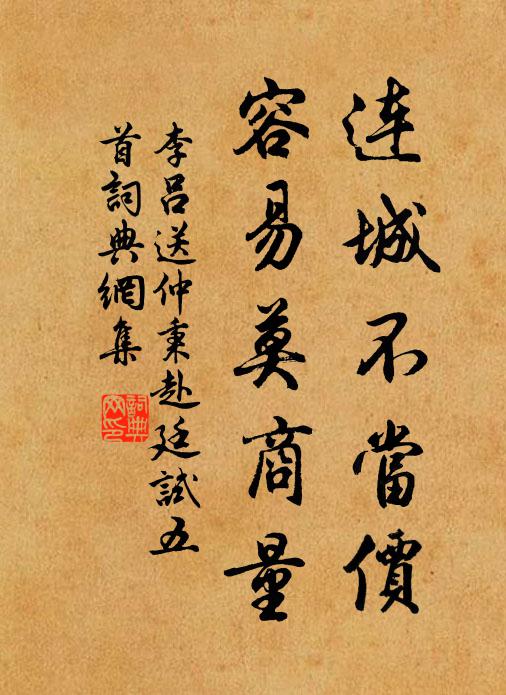 連城不當價
容易莫商量
李呂送仲秉赴廷試五
首詞典網集
詞典
网印